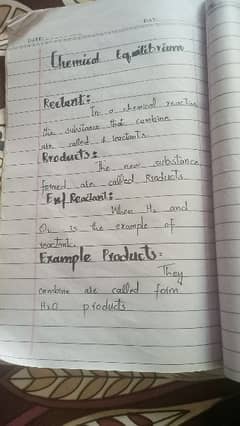 DATE:
DAY:
Chemical Equilibrium
Rectant:
In a chemical reaction
the substance that combine
are called a reactants
Products:
The new substance
formed are called Products.
Exp. Reactant:
When H2 and
O2 is the example of
reactant.
Example Products:
They
combine are called form
H2O products